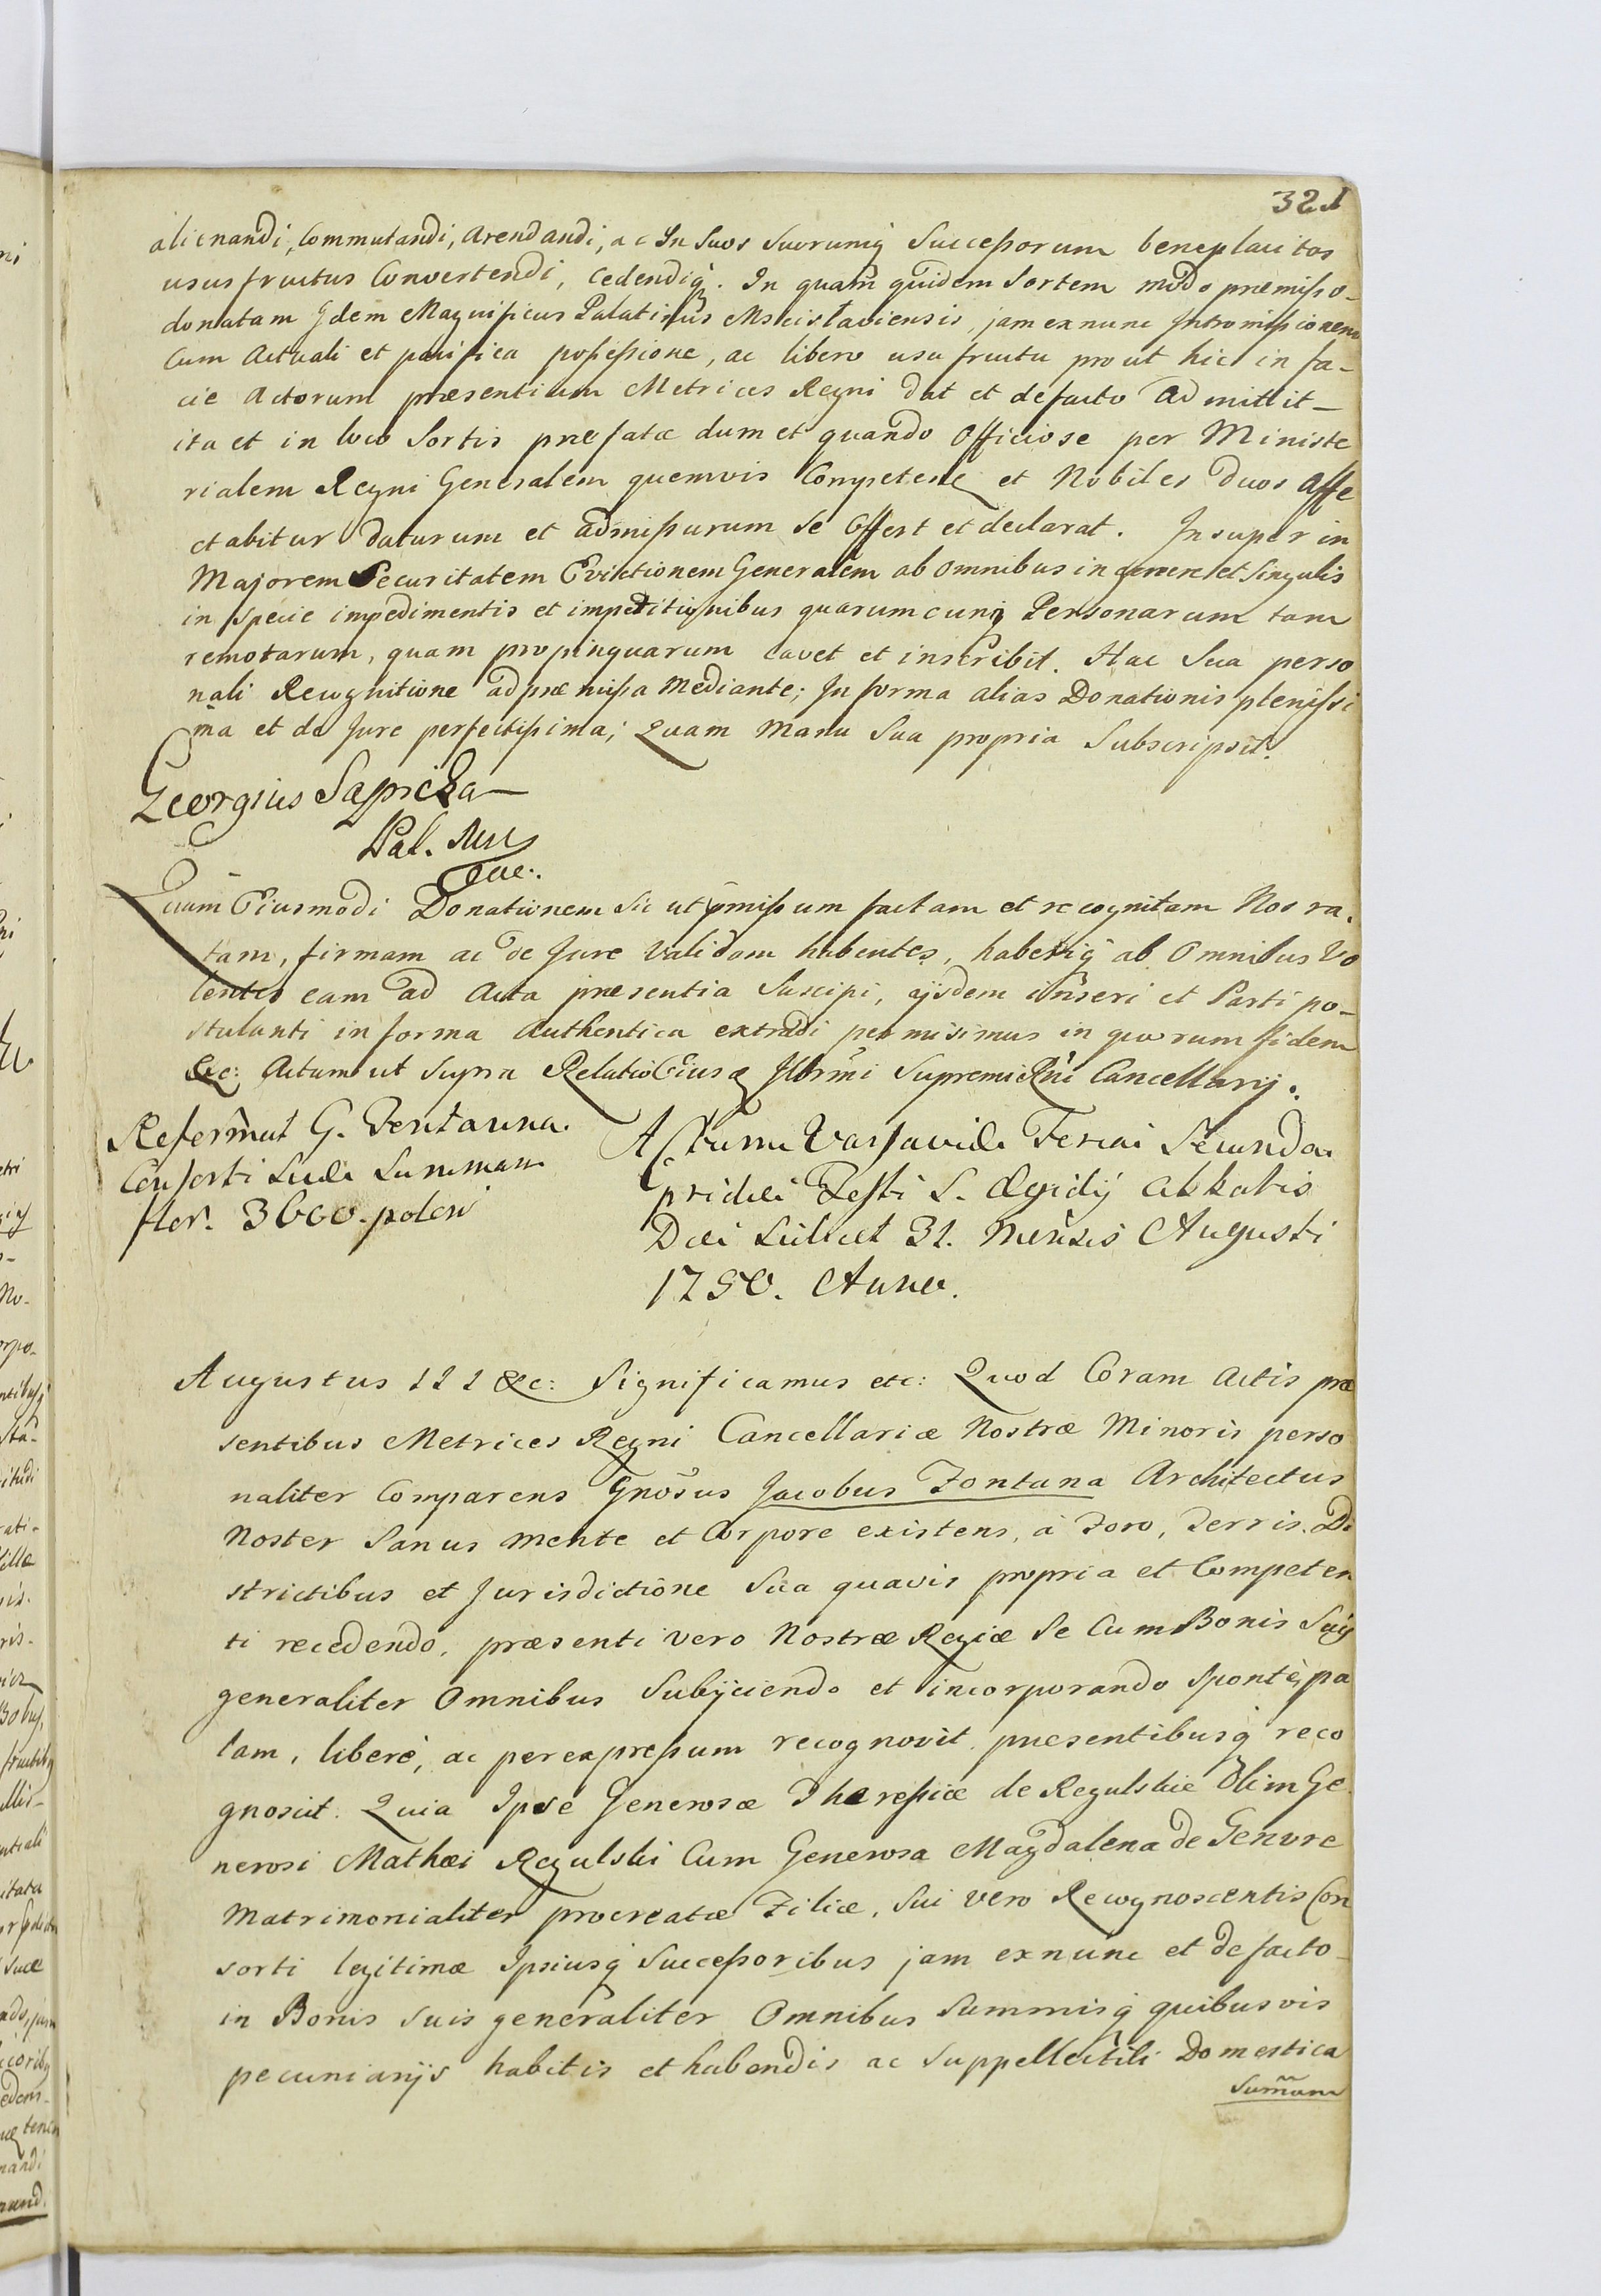 321
alienandi, Commutandi, Arendandi, ac In Suos Suorumq Successorum beneplacitos
ususfructus Convertendi, Cedendiq. In quam quidem Sortem modo præmisso-
donatam Idem Magnificus Palatinus Mscislaviensis, jam exnunc Intromissionem
Cum Actuali et pacifica possessione, ac libero usufructu prout hic in fa-
cie Actorum præsentium Metrices Regni dat et defacto Admittit-
ita et in loco Sortis præfatæ dum et quando Officiose per Ministe
rialem Regni Generalem quemvis Competentē et Nobiles duos affe
ctabitur daturum et admissurum se Offert et declarat. Insuper in
Majorem Securitatem Evictionem Generalem ab omnibus in genere et Singulis
in specie impedimentis et impetitionibus quarumcunq Personarum tam
remotarum, quam propinquarum cavet et inscribit. Hac Sua perso
nali Recognitione ad præmissa Mediante; In forma alias Donationis plenissi
ma et de Jure perfectissima; Quam Manu Sua propria Subscripsit.
Georgius Sapieha
Pal. Msc
Quam Eiusmodi Donationem Sic ut p̃missum factam et recognitam Nos ra-
tam, firmam ac de Jure validam habentes, haberiq ab Omnibus Vo
lentes eam ad Acta præsentia Suscipi, ijsdem inseri et Parti po-
stulanti in forma Authentica extradi permisimus in quorum fidem
&c: Actum ut Supra Relatio Eiusq Illũmi Supremi Rñi Cancellarij.
Reformat G. Fontanna
Consorti Suæ Summam
flor. 3600. polon
Actum Varsaviæ Feria Secunda
pridie Festi S. Ægidij Abbatis
Die Scilicet 31. Mensis Augusti
1750. Anno.
Augustus III &c: Significamus etc: Quod Coram Actis præ
sentibus Metrices Regni Cancellariæ Nostræ Minoris perso
naliter Comparens Gnõsus Jacobus Fontana Architectus
Noster Sanus mente et Corpore existens, à Foro, Terris. Di
strictibus et Jurisdictione Sua quavis propria et Competen
ti recedendo, præsenti vero Nostræ Regiæ Se Cum Bonis Suis
generaliter Omnibus Subijciendo et incorporando Sponte, pa
lam, libere, ac per expressum recognovit præsentibusq reco
gnoscit. Quia Ipse Generosæ Theresiæ de Regulskie Olim Ge
nerosi Mathæi Regulski Cum Generosa Magdalena de Genvre
Matrimonialiter procreatæ Filiæ, Sui vero Recognoscentis Con
sorti legitimæ Ipsiusq Successoribus jam exnunc et defacto-
in Bonis suis generaliter Omnibus Summisq quibusvis
pecuniarijs habitis et habendis ac Suppellectili Domestica
Sum̃am